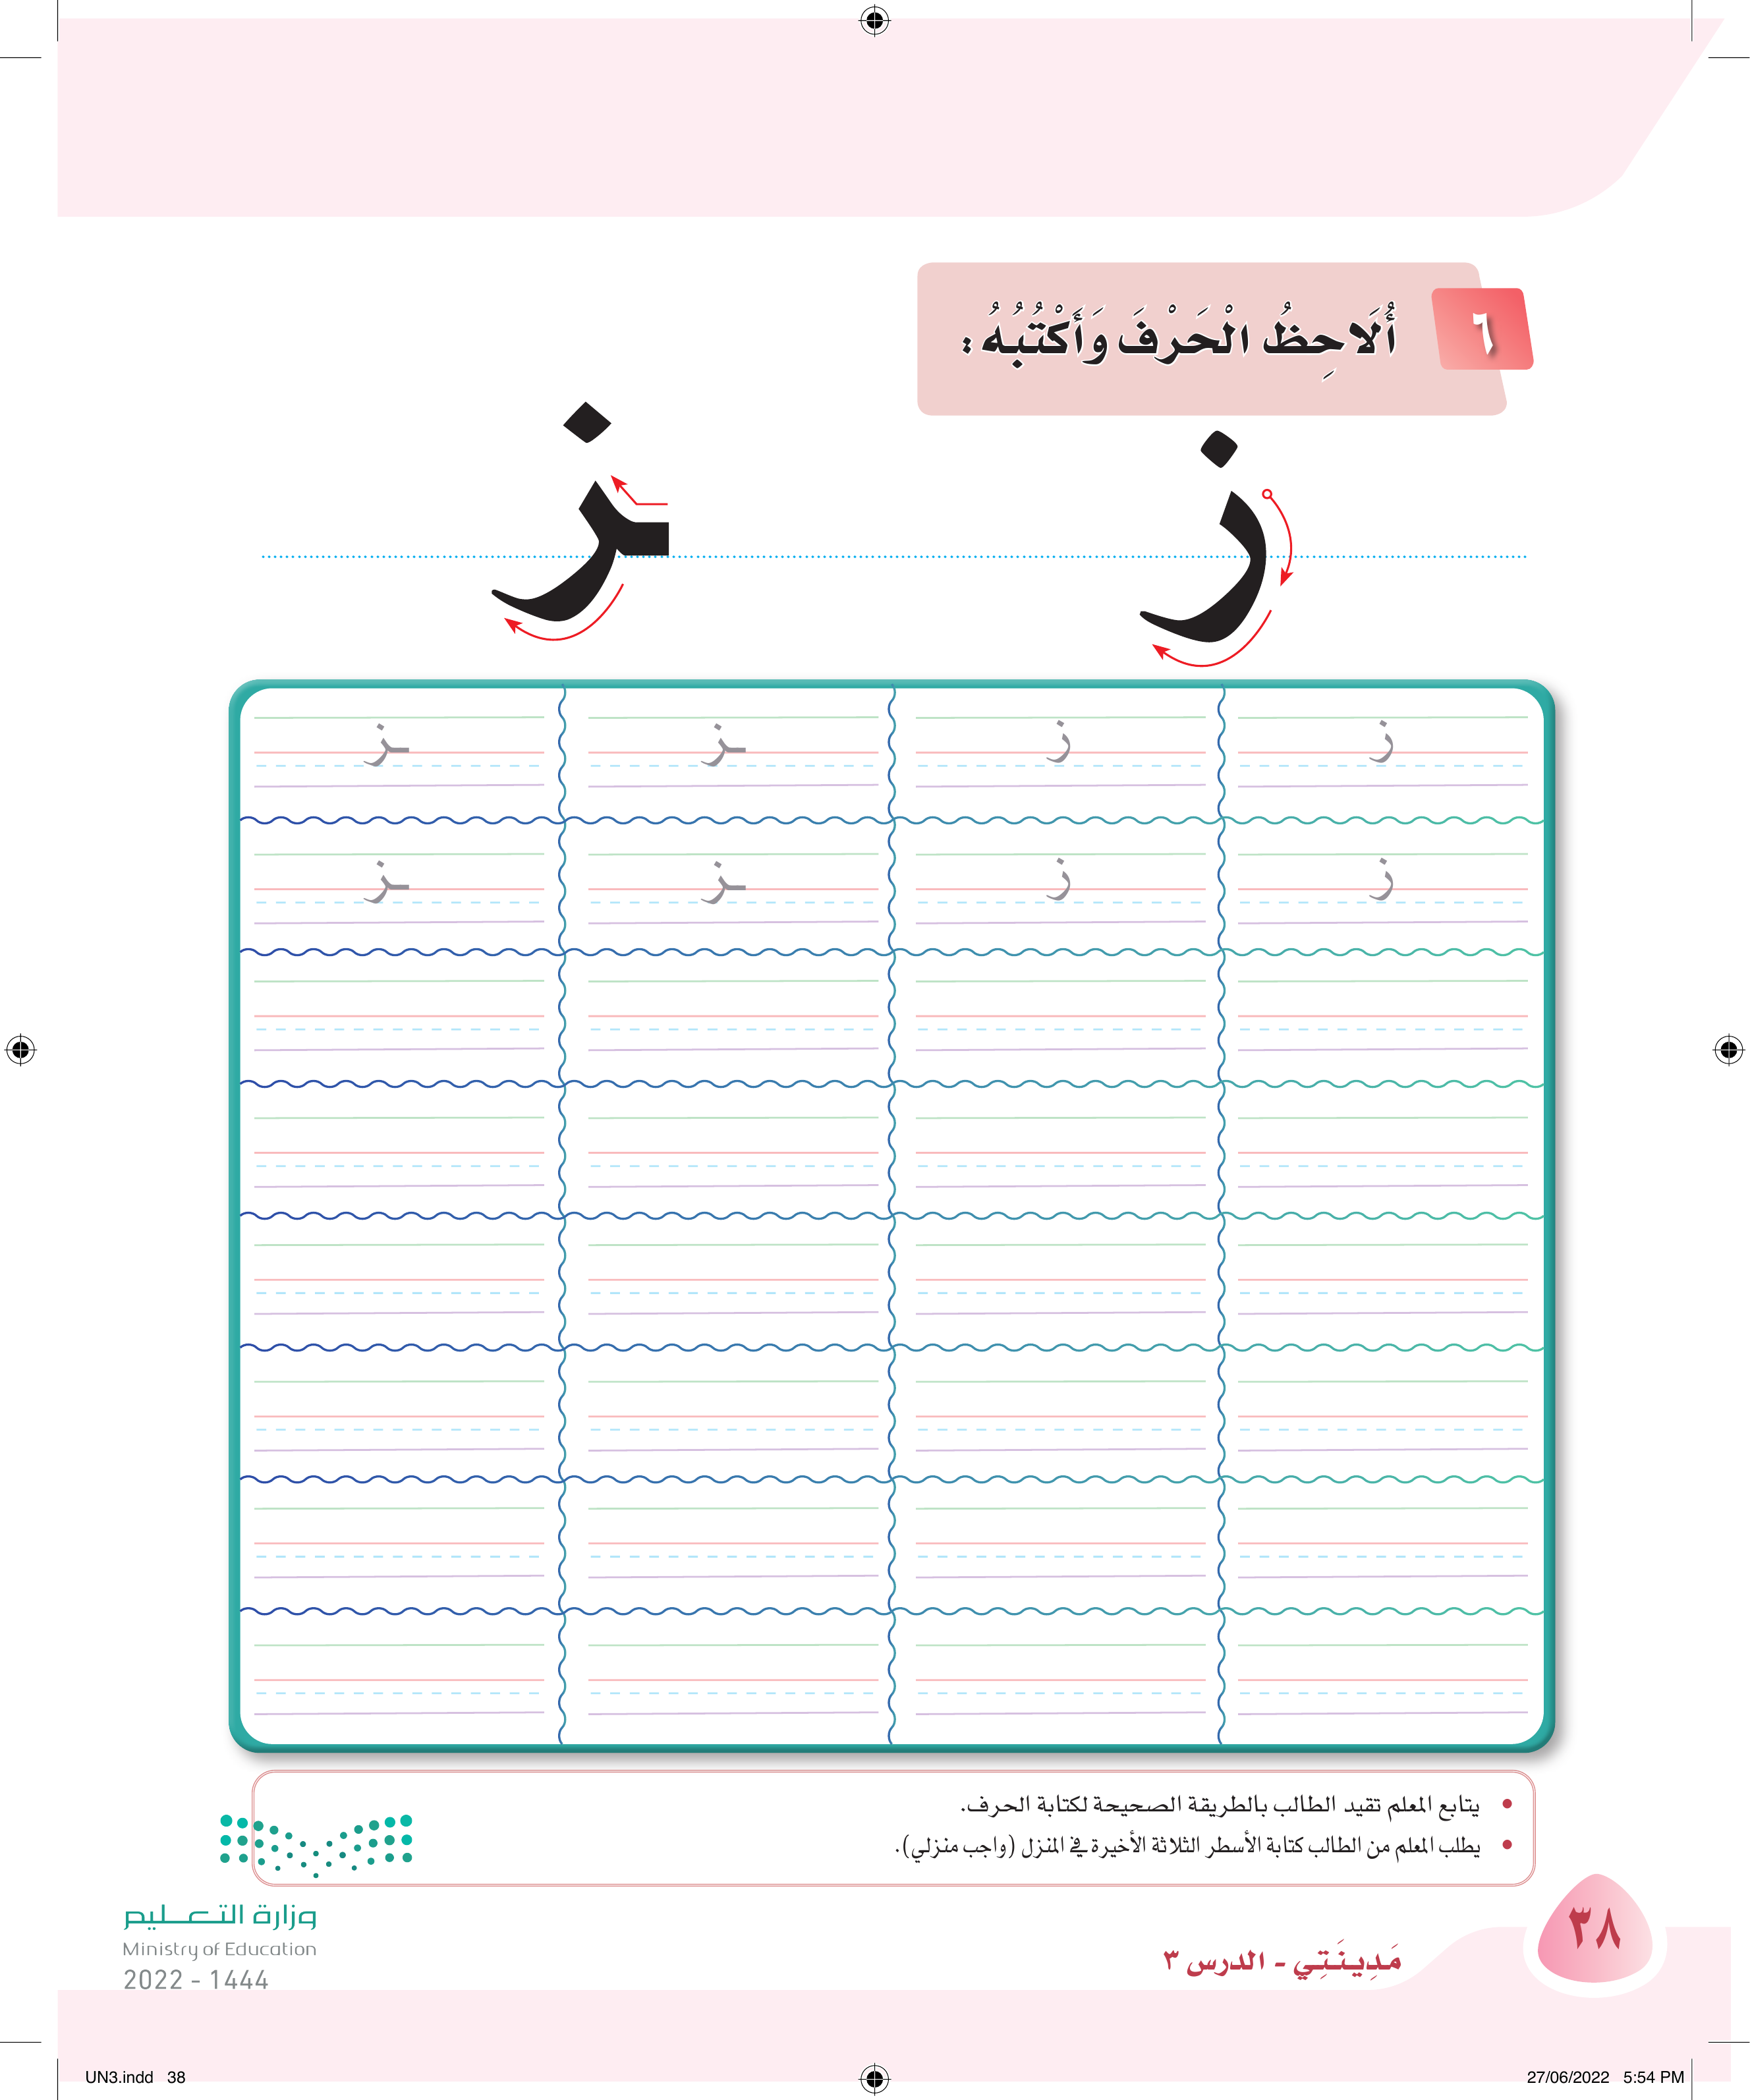 ٦ أُلَاحِظُ الْحَرْفَ وَأَكْتُبُهُ :
ز ـز
ز ز ـز ـز
ز ز ـز ـز
• يتابع المعلم تقيد الطالب بالطريقة الصحيحة لكتابة الحرف.
• يطلب المعلم من الطالب كتابة الأسطر الثلاثة الأخيرة في المنزل (واجب منزلي).
وزارة التعليم
Ministry of Education
2022 - 1444
٣٨
مَدِينَتِي - الدرس ٣
UN3.indd 38
27/06/2022 5:54 PM